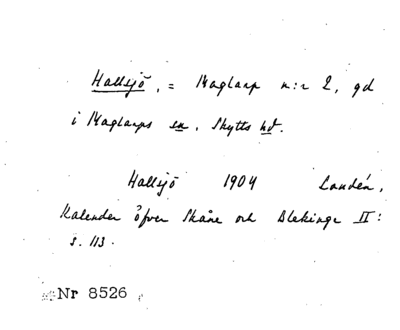 Hallsjö, = Maglarp n:r 2, gd
i Maglarps sn, Skytts hd.
Hallsjö 1904 Landén,
Kalender öfver Skåne och Blekinge II:
s. 113.
Nr 8526